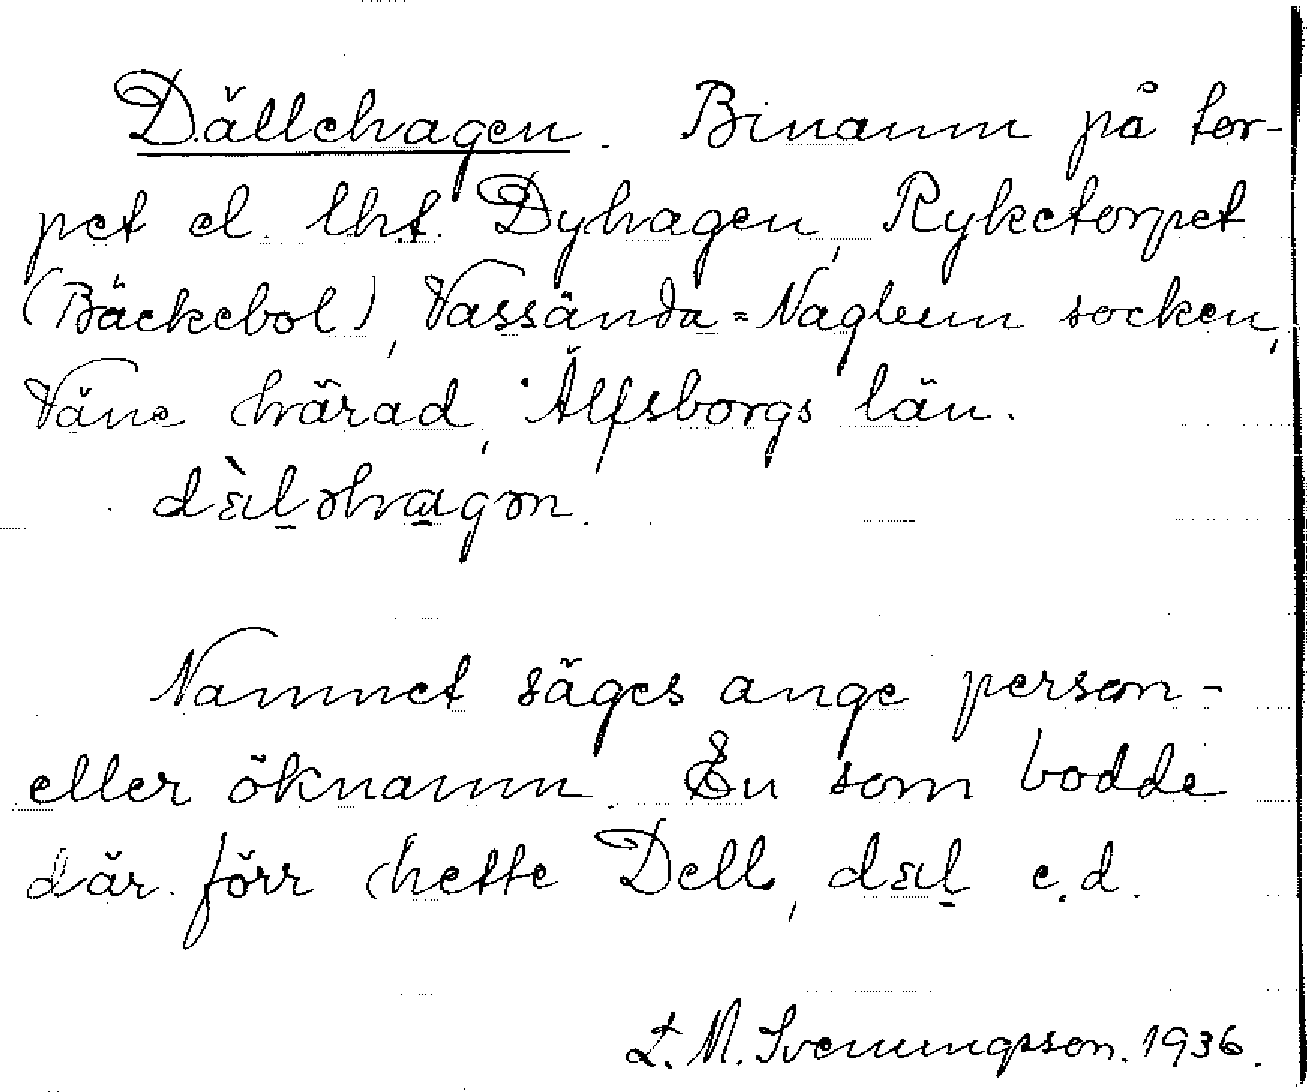 Dällehagen. Binamn på tor-
pet el. lht. Dyhagen, Ryketorpet
(Bäckebol), Vassända-Naglum socken,
Väne härad, Älfsborgs län.
dὲl̠əha̠gən.
Namnet säges ange person-
eller öknamn. En som bodde
där förr hette Dell, dεl̠ e.d.
L. M. Svenungsson. 1936.